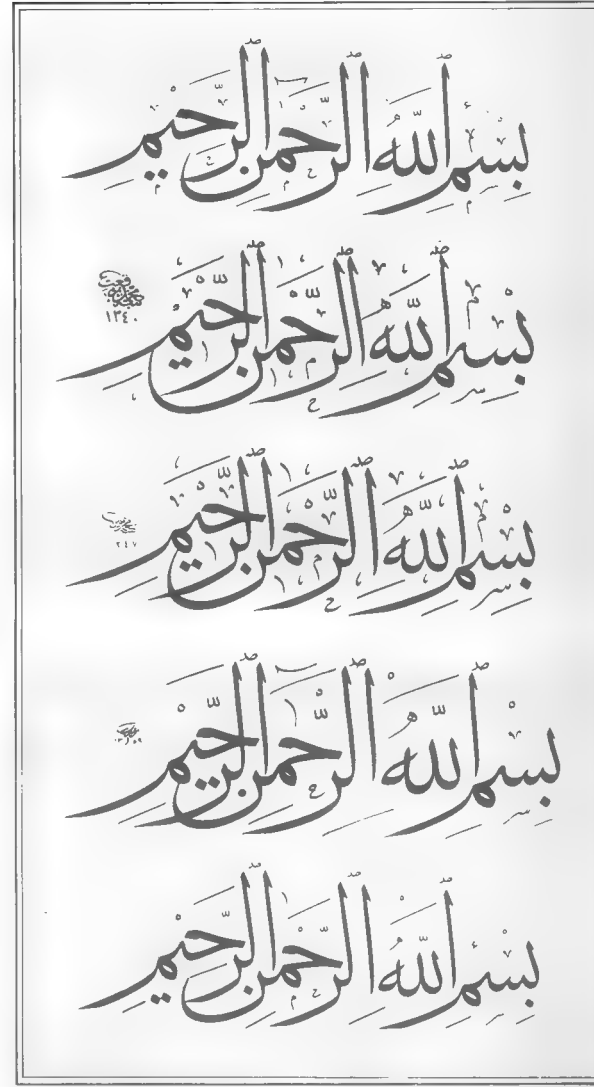 بِسْمِ اللهِ الرَّحْمٰنِ الرَّحِيْمِ
بِسْمِ اللهِ الرَّحْمٰنِ الرَّحِيْمِ
١٣٤٠
بِسْمِ اللهِ الرَّحْمٰنِ الرَّحِيْمِ
بِسْمِ اللهِ الرَّحْمٰنِ الرَّحِيْمِ
بِسْمِ اللهِ الرَّحْمٰنِ الرَّحِيْمِ